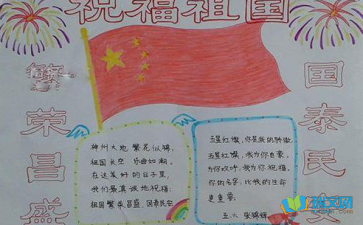 祝福祖国
繁荣昌盛
国泰民安
神州大地 繁花似锦,
祖国长空 乐曲如潮。
在这美好的日子里,
我们最真诚地祝福:
祖国繁荣昌盛,国泰民安
五星红旗,你是我的骄傲
五星红旗,我为你自豪,
为你欢呼,我为你祝福,
你的名字,比我的生命
更重要。